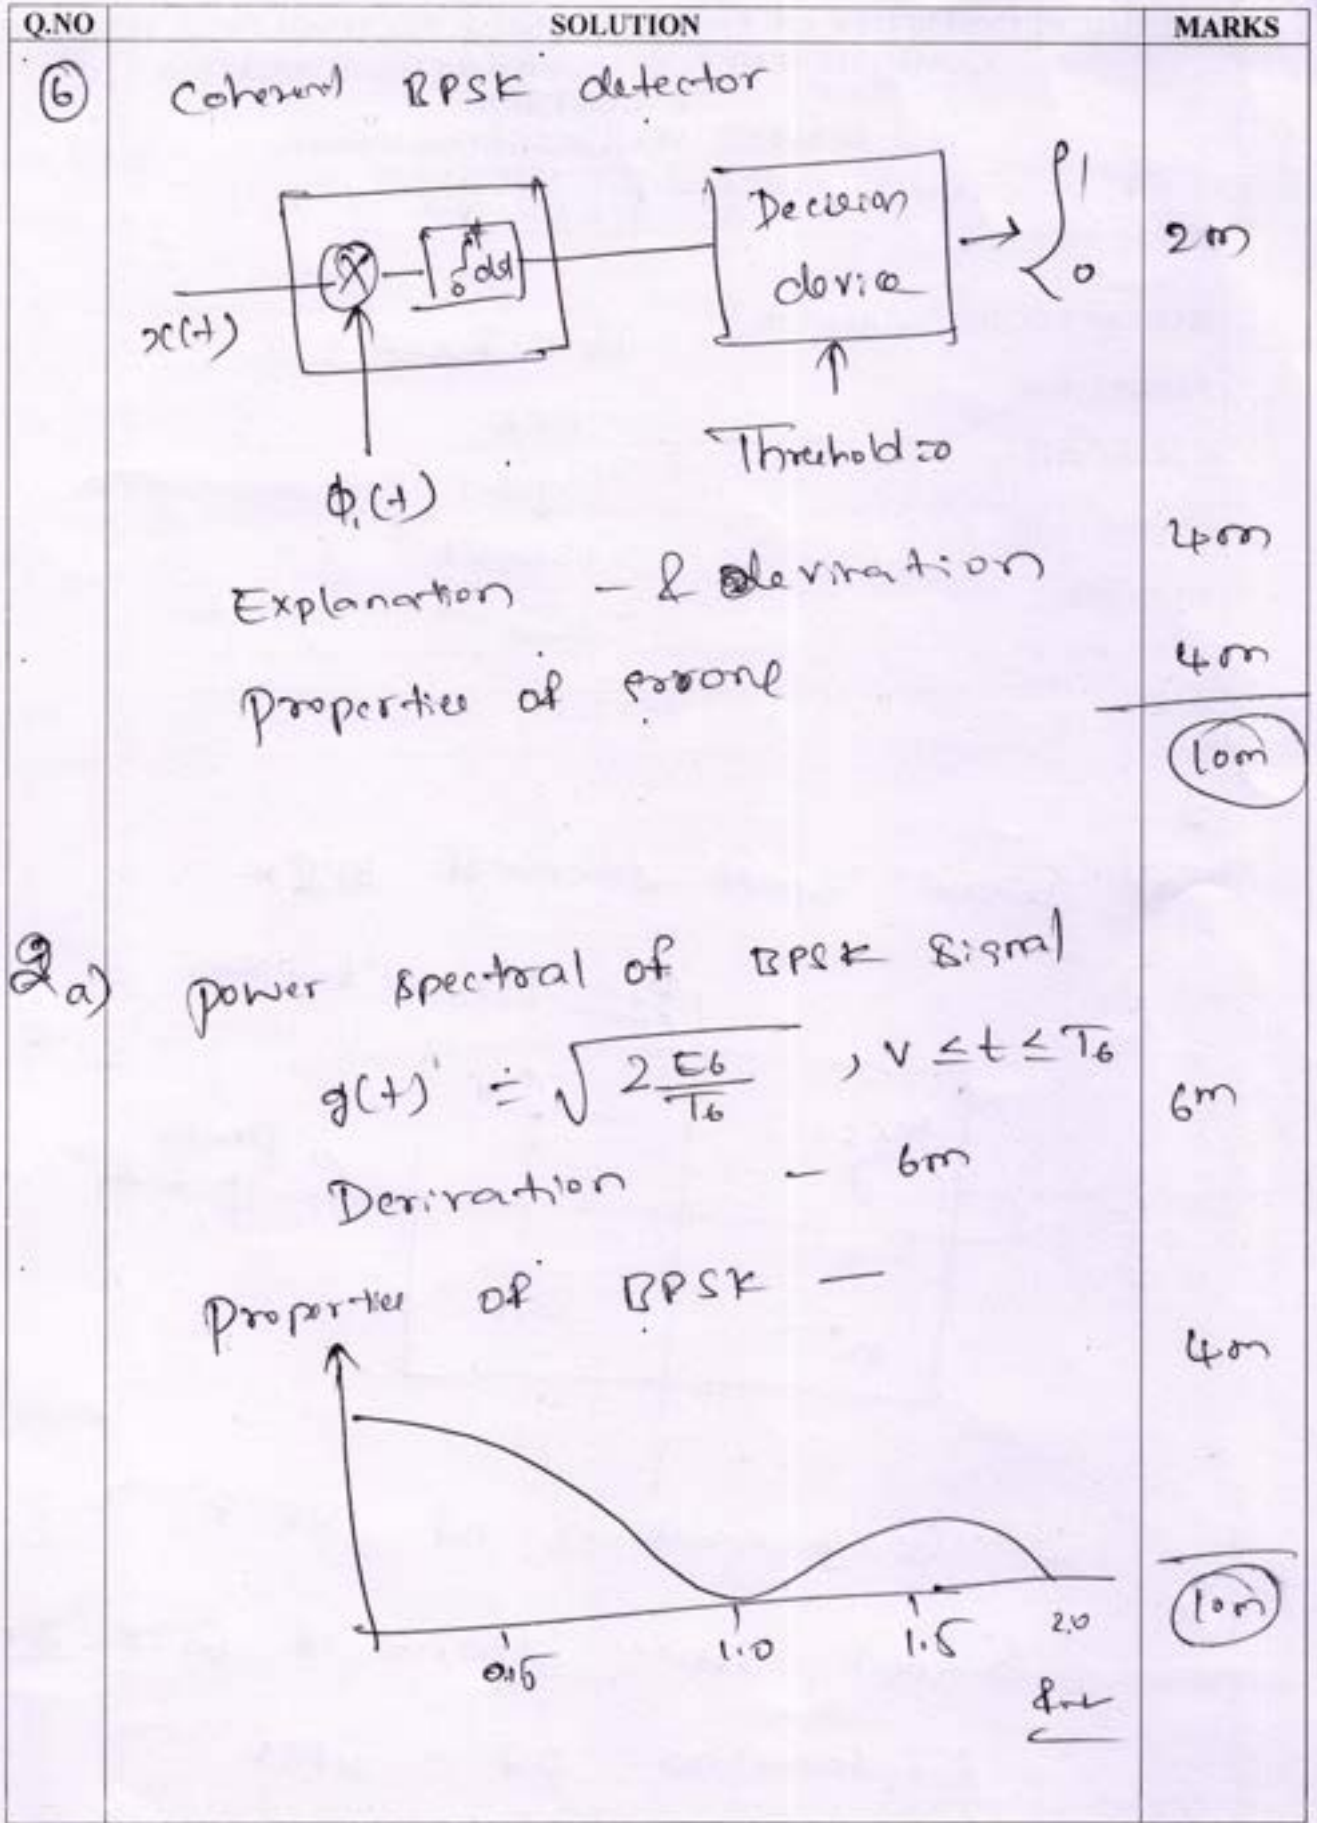 Q.NO SOLUTION MARKS
6 Coherent BPSK detector
x(t) X ∫ dt Decision device → { 1 0 2m
Φ₁(t) Threshold = 0
Explanation - & deviration 4m
Properties of errore 4m
10m
2a) power spectral of BPSK Signal
g(t) = √ 2 Eb / Tb , v ≤ t ≤ Tb 6m
Derivation - 6m
Properties of BPSK — 4m
0.5 1.0 1.5 2.0 10m